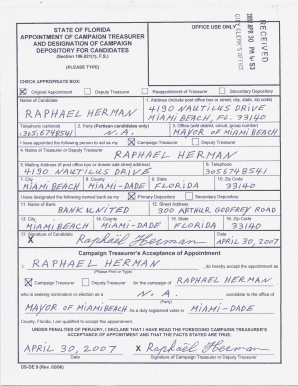 STATE OF FLORIDA
APPOINTMENT OF CAMPAIGN TREASURER
AND DESIGNATION OF CAMPAIGN
DEPOSITORY FOR CANDIDATES
(Section 106.021(1), F.S.)
(PLEASE TYPE)
OFFICE USE ONLY
RECEIVED
2007 APR 30 PM 4:53
CITY CLERK'S OFFICE
CHECK APPROPRIATE BOX:
X Original Appointment Reappointment of Treasurer Secondary Depository
Name of Candidate
RAPHAEL HERMAN
1. Address (include post office box or street, city, state, zip code)
4190 NAUTILUS DRIVE
MIAMI BEACH, FL. 33140
Telephone (optional)
305.6748541
2. Party (Partisan candidates only)
N.A.
3. Office (add district, circuit, group number)
MAYOR of MIAMI BEACH
I have appointed the following person to act as my X Campaign Treasurer Deputy Treasurer
4. Name of Treasurer or Deputy Treasurer
RAPHAEL HERMAN
5. Mailing Address (If post office box or drawer add street address)
4190 NAUTILUS DRIVE
6. Telephone
305 6748541
7. City
MIAMI BEACH
8. County
MIAMI-DADE
9. State
FLORIDA
10. Zip Code
33140
I have designated the following named bank as my X Primary Depository Secondary Depository
11. Name of Bank
BANK UNITED
12. Street Address
300 ARTHUR GODFREY ROAD
13. City
MIAMI BEACH
14. County
MIAMI-DADE
15. State
FLORIDA
16. Zip Code
33140
17. Signature of Candidate
X Raphaël Herman
Date
APRIL 30, 2007
Campaign Treasurer's Acceptance of Appointment
I, RAPHAEL HERMAN, do hereby accept the appointment as
(Please Print or Type)
X Campaign Treasurer Deputy Treasurer for the campaign of RAPHAEL HERMAN
who is seeking nomination or election as a N.A. candidate to the office of
(Party)
MAYOR OF MIAMI BEACH As a duly registered voter in MIAMI-DADE
County, Florida, I am qualified to accept this appointment.
UNDER PENALTIES OF PERJURY, I DECLARE THAT I HAVE READ THE FOREGOING CAMPAIGN TREASURER'S
ACCEPTANCE OF APPOINTMENT AND THAT THE FACTS STATED ARE TRUE.
APRIL 30, 2007 X Raphaël Herman
Date Signature of Campaign Treasurer or Deputy Treasurer
DS-DE 9 (Rev. 02/06)